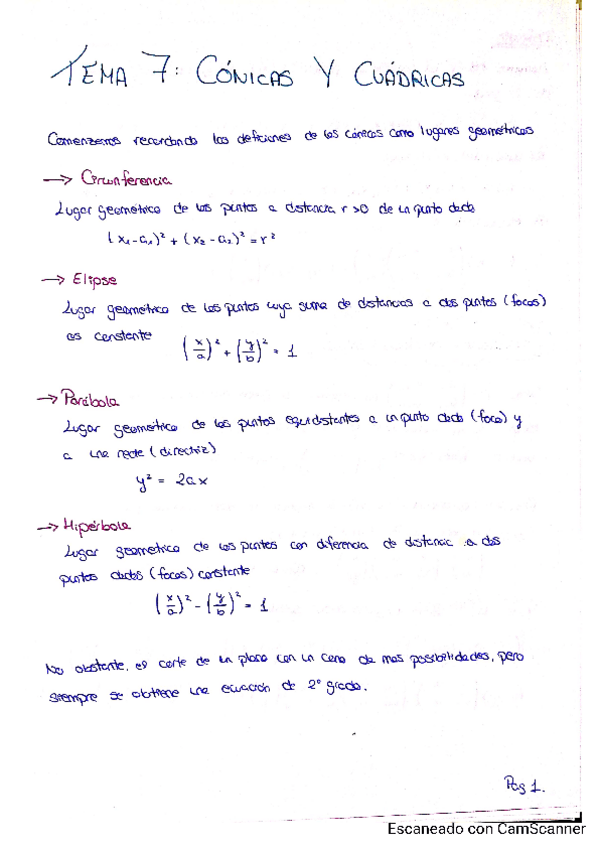 TEMA 7: CÓNICAS Y CUÁDRICAS
Comenzemos recordando las deficiones de las cónicas como lugares geométricos
→ Circunferencia
Lugar geométrico de los puntos a distancia r >0 de un punto dado
(x₁-a₁)² + (x₂-a₂)² = r²
→ Elipse
Lugar geométrico de los puntos cuya suma de distancias a dos puntos (focos)
es constante
(x/a)² + (y/b)² = 1
→ Parábola
Lugar geométrico de los puntos equidistantes a un punto dado (foco) y
a una recte (directriz)
y² = 2ax
→ Hipérbola
Lugar geométrico de los puntos con diferencia de distancia a dos
puntos dados (focos) constante
(x/a)² - (y/b)² = 1
No obstante, el corte de un plano con un cono da mas posibilidades, pero
siempre se obtiene una ecuación de 2º grado.
Pág 1.
Escaneado con CamScanner